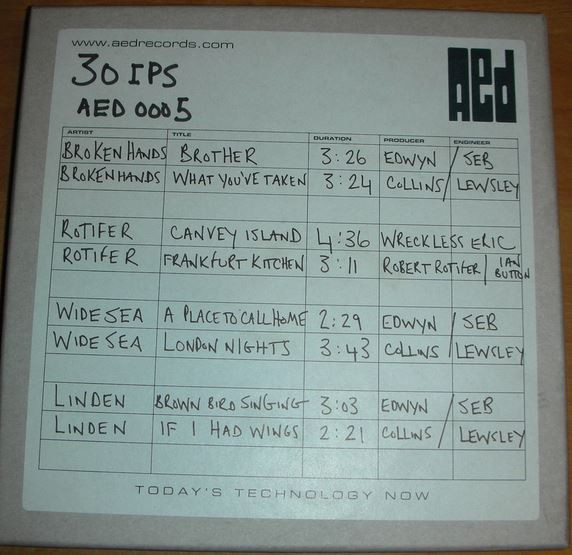 www.aedrecords.com
30 IPS
AED 0005
AED
ARTIST TITLE DURATION PRODUCER ENGINEER
BROKEN HANDS BROTHER 3:26 EDWYN / SEB
BROKEN HANDS WHAT YOU'VE TAKEN 3:24 COLLINS / LEWSLEY
ROTIFER CANVEY ISLAND 4:36 WRECKLESS ERIC
ROTIFER FRANKFURT KITCHEN 3:11 ROBERT ROTIFER / IAN BUTTON
WIDE SEA A PLACE TO CALL HOME 2:29 EDWYN / SEB
WIDE SEA LONDON NIGHTS 3:43 COLLINS / LEWSLEY
LINDEN BROWN BIRD SINGING 3:03 EDWYN / SEB
LINDEN IF I HAD WINGS 2:21 COLLINS / LEWSLEY
TODAY'S TECHNOLOGY NOW